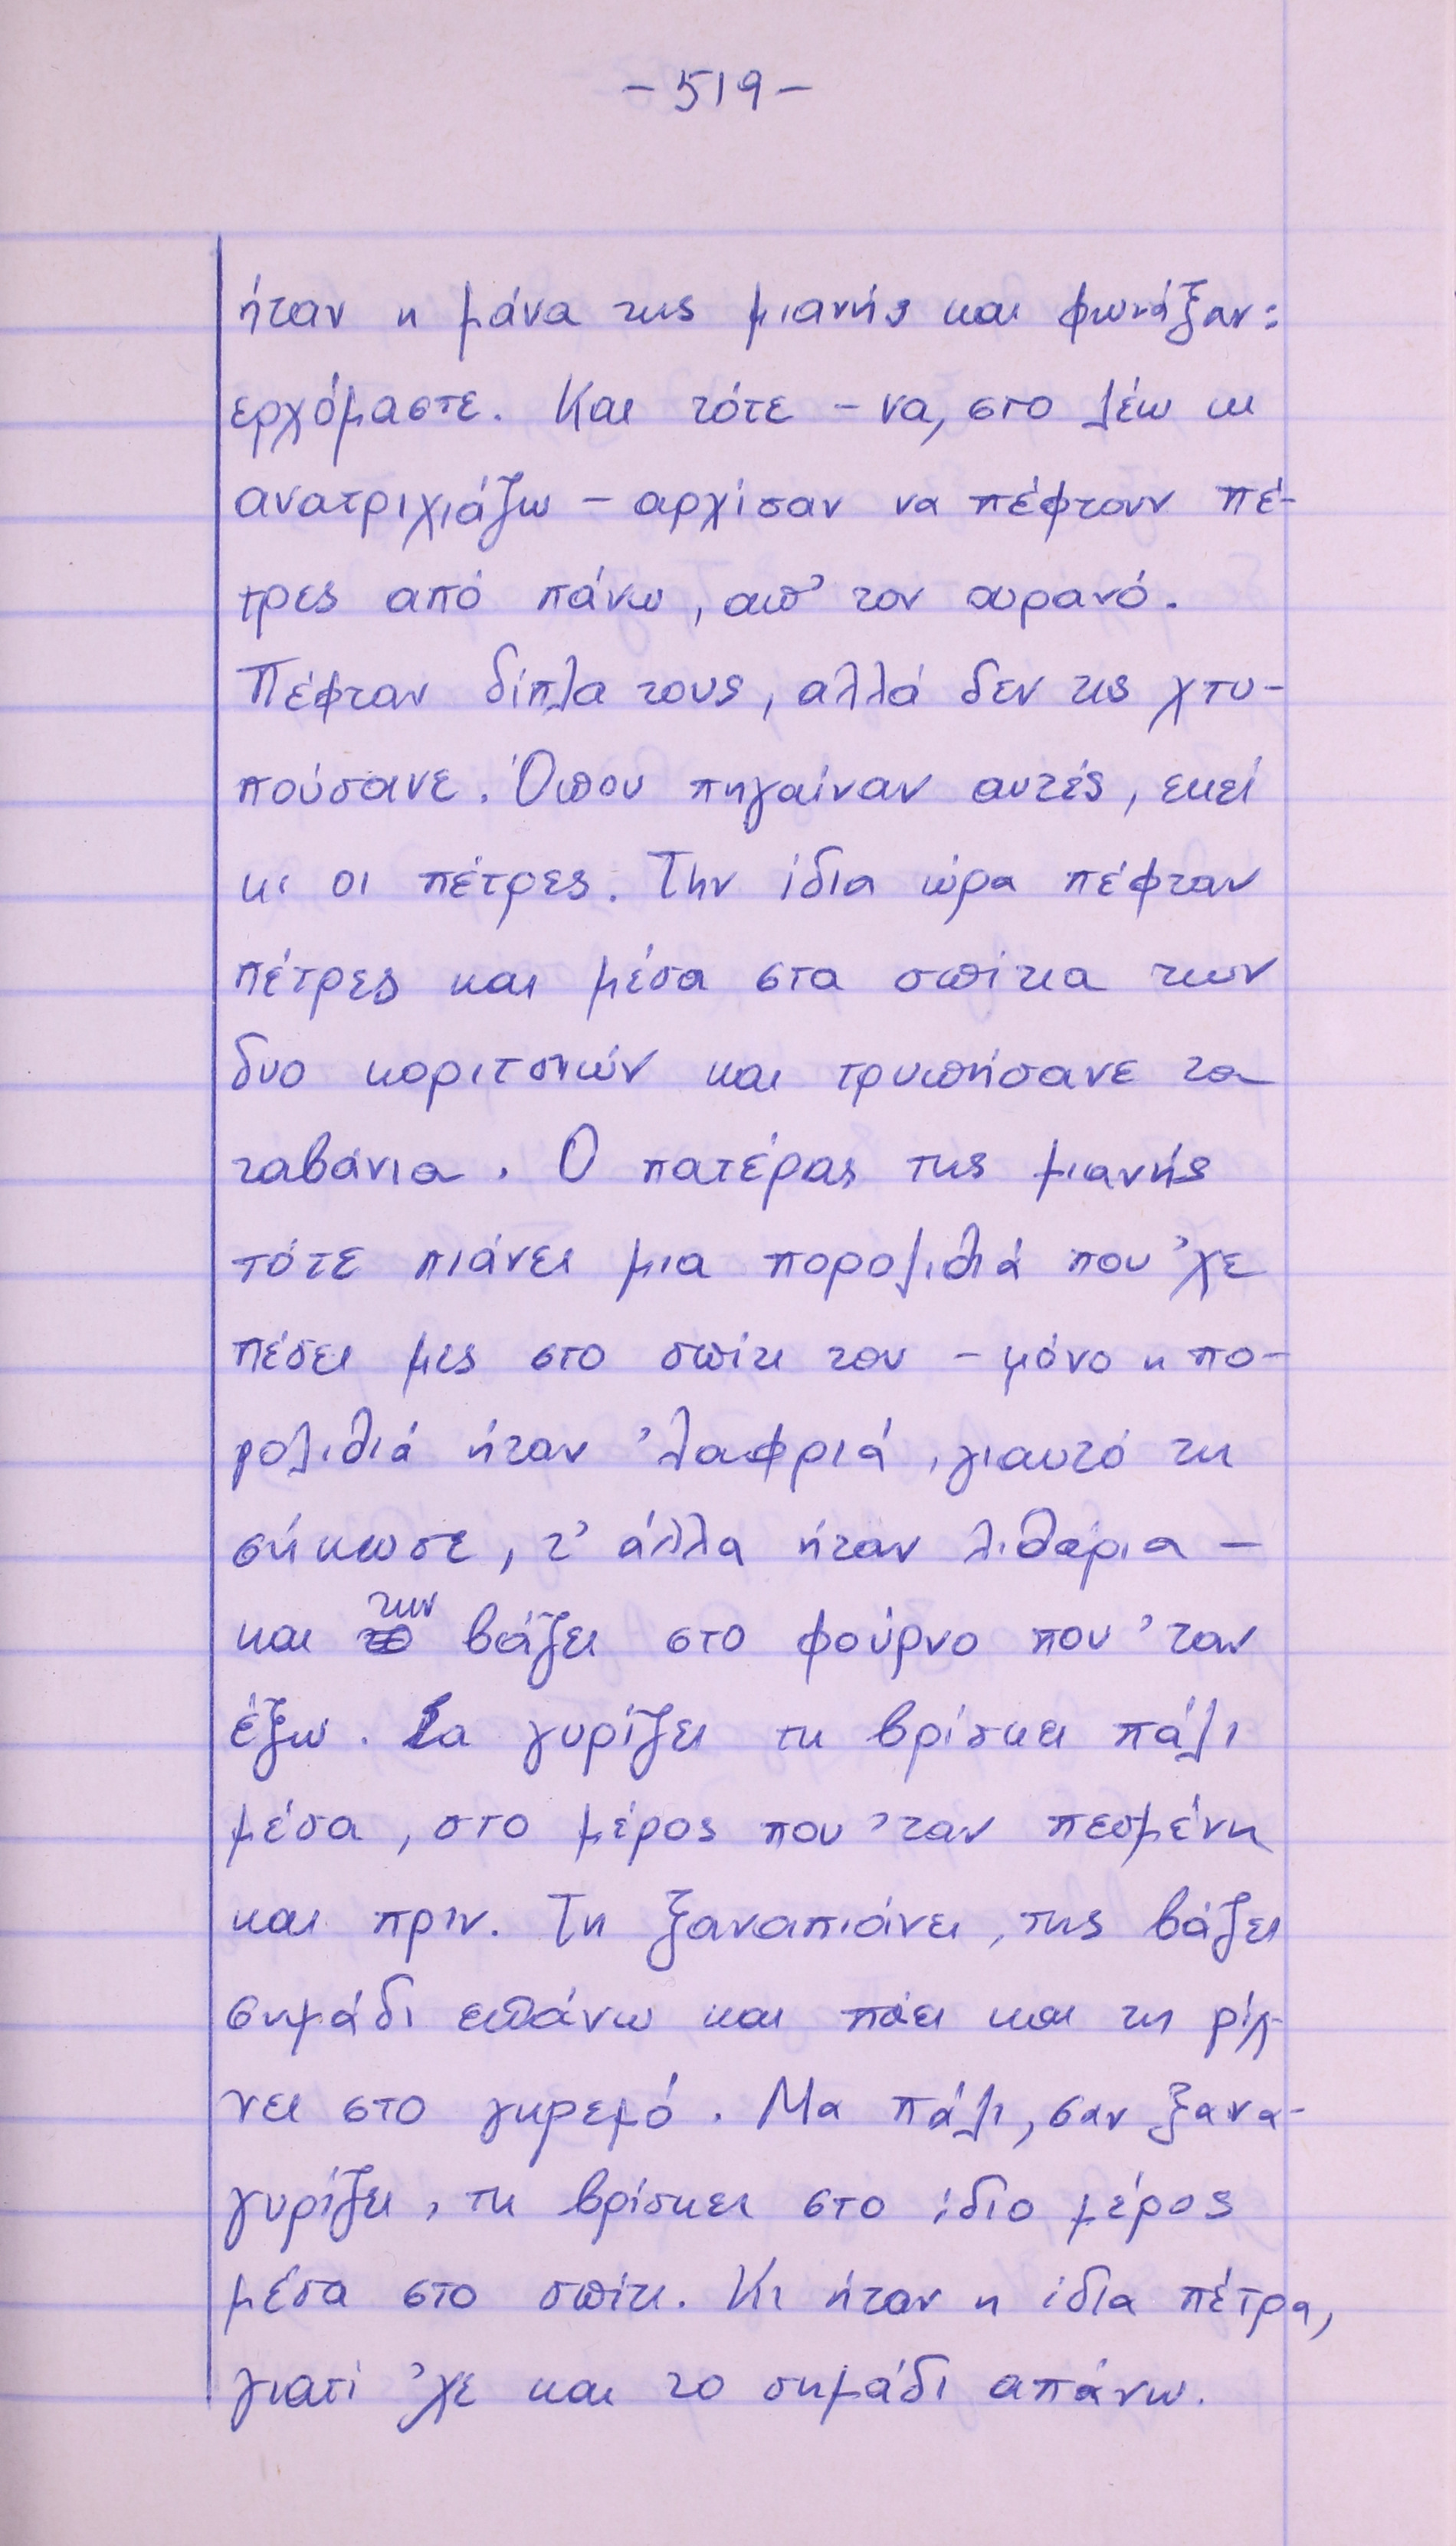 - 519 -
ήταν η μάνα της μιανής και φωνάξαν:
ερχόμαστε. Και τότε - να, στο λέω κι
ανατριχιάζω - αρχίσαν να πέφτουν πέ-
τρες από πάνω, απ' τον ουρανό.
Πέφταν δίπλα τους, αλλά δεν τις χτυ-
πούσανε. Όπου πηγαίναν αυτές, εκεί
κι οι πέτρες. Την ίδια ώρα πέφταν
πέτρες και μέσα στα σπίτια των
δυο κοριτσιών και τρυπήσανε τα
ταβάνια. Ο πατέρας της μιανής
τότε πιάνει μια πορολιθιά που 'χε
πέσει μες στο σπίτι του - μόνο η πο-
ρολιθιά ήταν 'λαφριά, γιαυτό τη
σήκωσε, τ' άλλα ήταν λιθάρια -
και την βάζει στο φούρνο που 'ταν
έξω. Σα γυρίζει τη βρίσκει πάλι
μέσα, στο μέρος που 'ταν πεσμένη
και πριν. Τη ξαναπιάνει, της βάζει
σημάδι επάνω και πάει και τη ρίχ-
νει στο γκρεμό. Μα πάλι, σαν ξανα-
γυρίζει, τη βρίσκει στο ίδιο μέρος
μέσα στο σπίτι. Κι ήταν η ίδια πέτρα,
γιατί 'χε και το σημάδι απάνω.